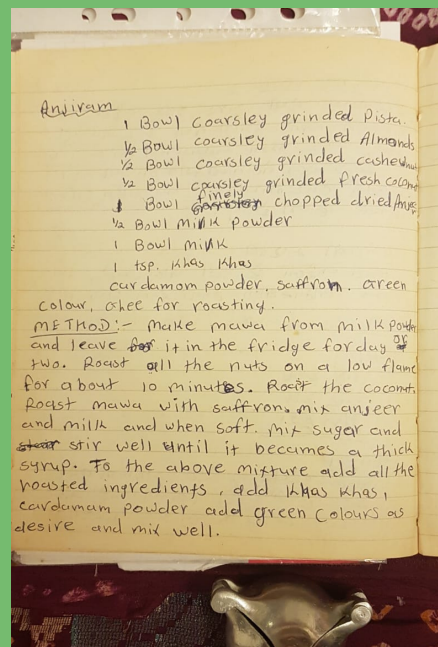 Anjiram
1 Bowl coarsley grinded Pista.
1/2 Bowl coarsley grinded Almonds
1/2 Bowl coarsley grinded cashewnut
1/2 Bowl coarsley grinded fresh coconut
1 Bowl finely chopped dried Anjeer
1/2 Bowl milk powder
1 Bowl milk
1 tsp. Khas Khas
cardamom powder, saffron. Green
colour, Ghee for roasting.
METHOD:- make mawa from milk powder
and leave it in the fridge for day or
two. Roast all the nuts on a low flame
for about 10 minutes. Roast the coconut.
Roast mawa with saffron. mix anjeer
and milk and when soft. mix sugar and
stir well until it becames a thick
syrup. To the above mixture add all the
roasted ingredients, add Khas Khas,
cardamam powder add green colours as
desire and mix well.